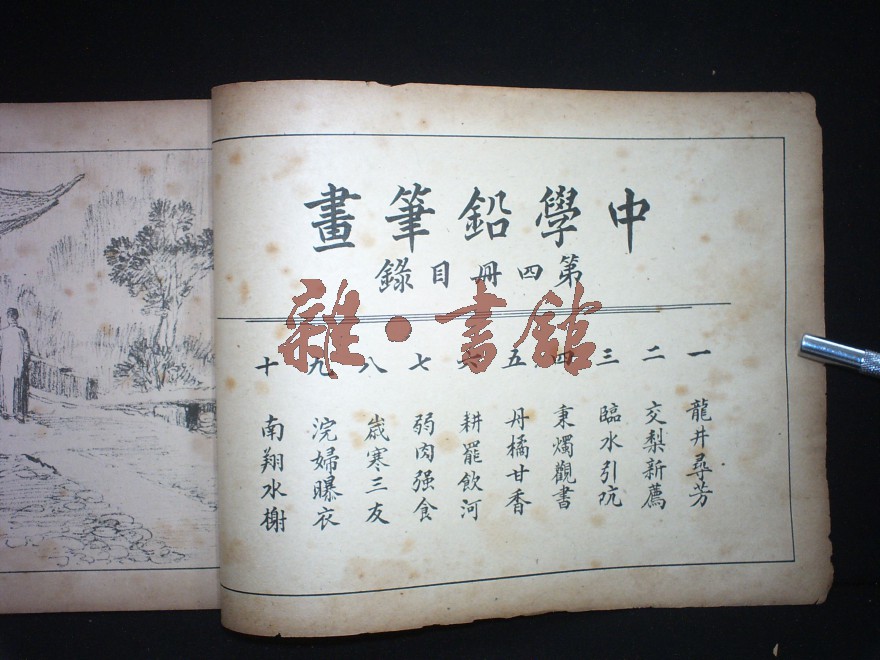 中學鉛筆畫
第四冊目錄
雜·書館
一 龍井尋芳
二 交梨新薦
三 臨水引吭
四 秉燭觀書
五 丹橘甘香
六 耕罷飲河
七 弱肉强食
八 歲寒三友
九 浣婦曝衣
十 南翔水榭